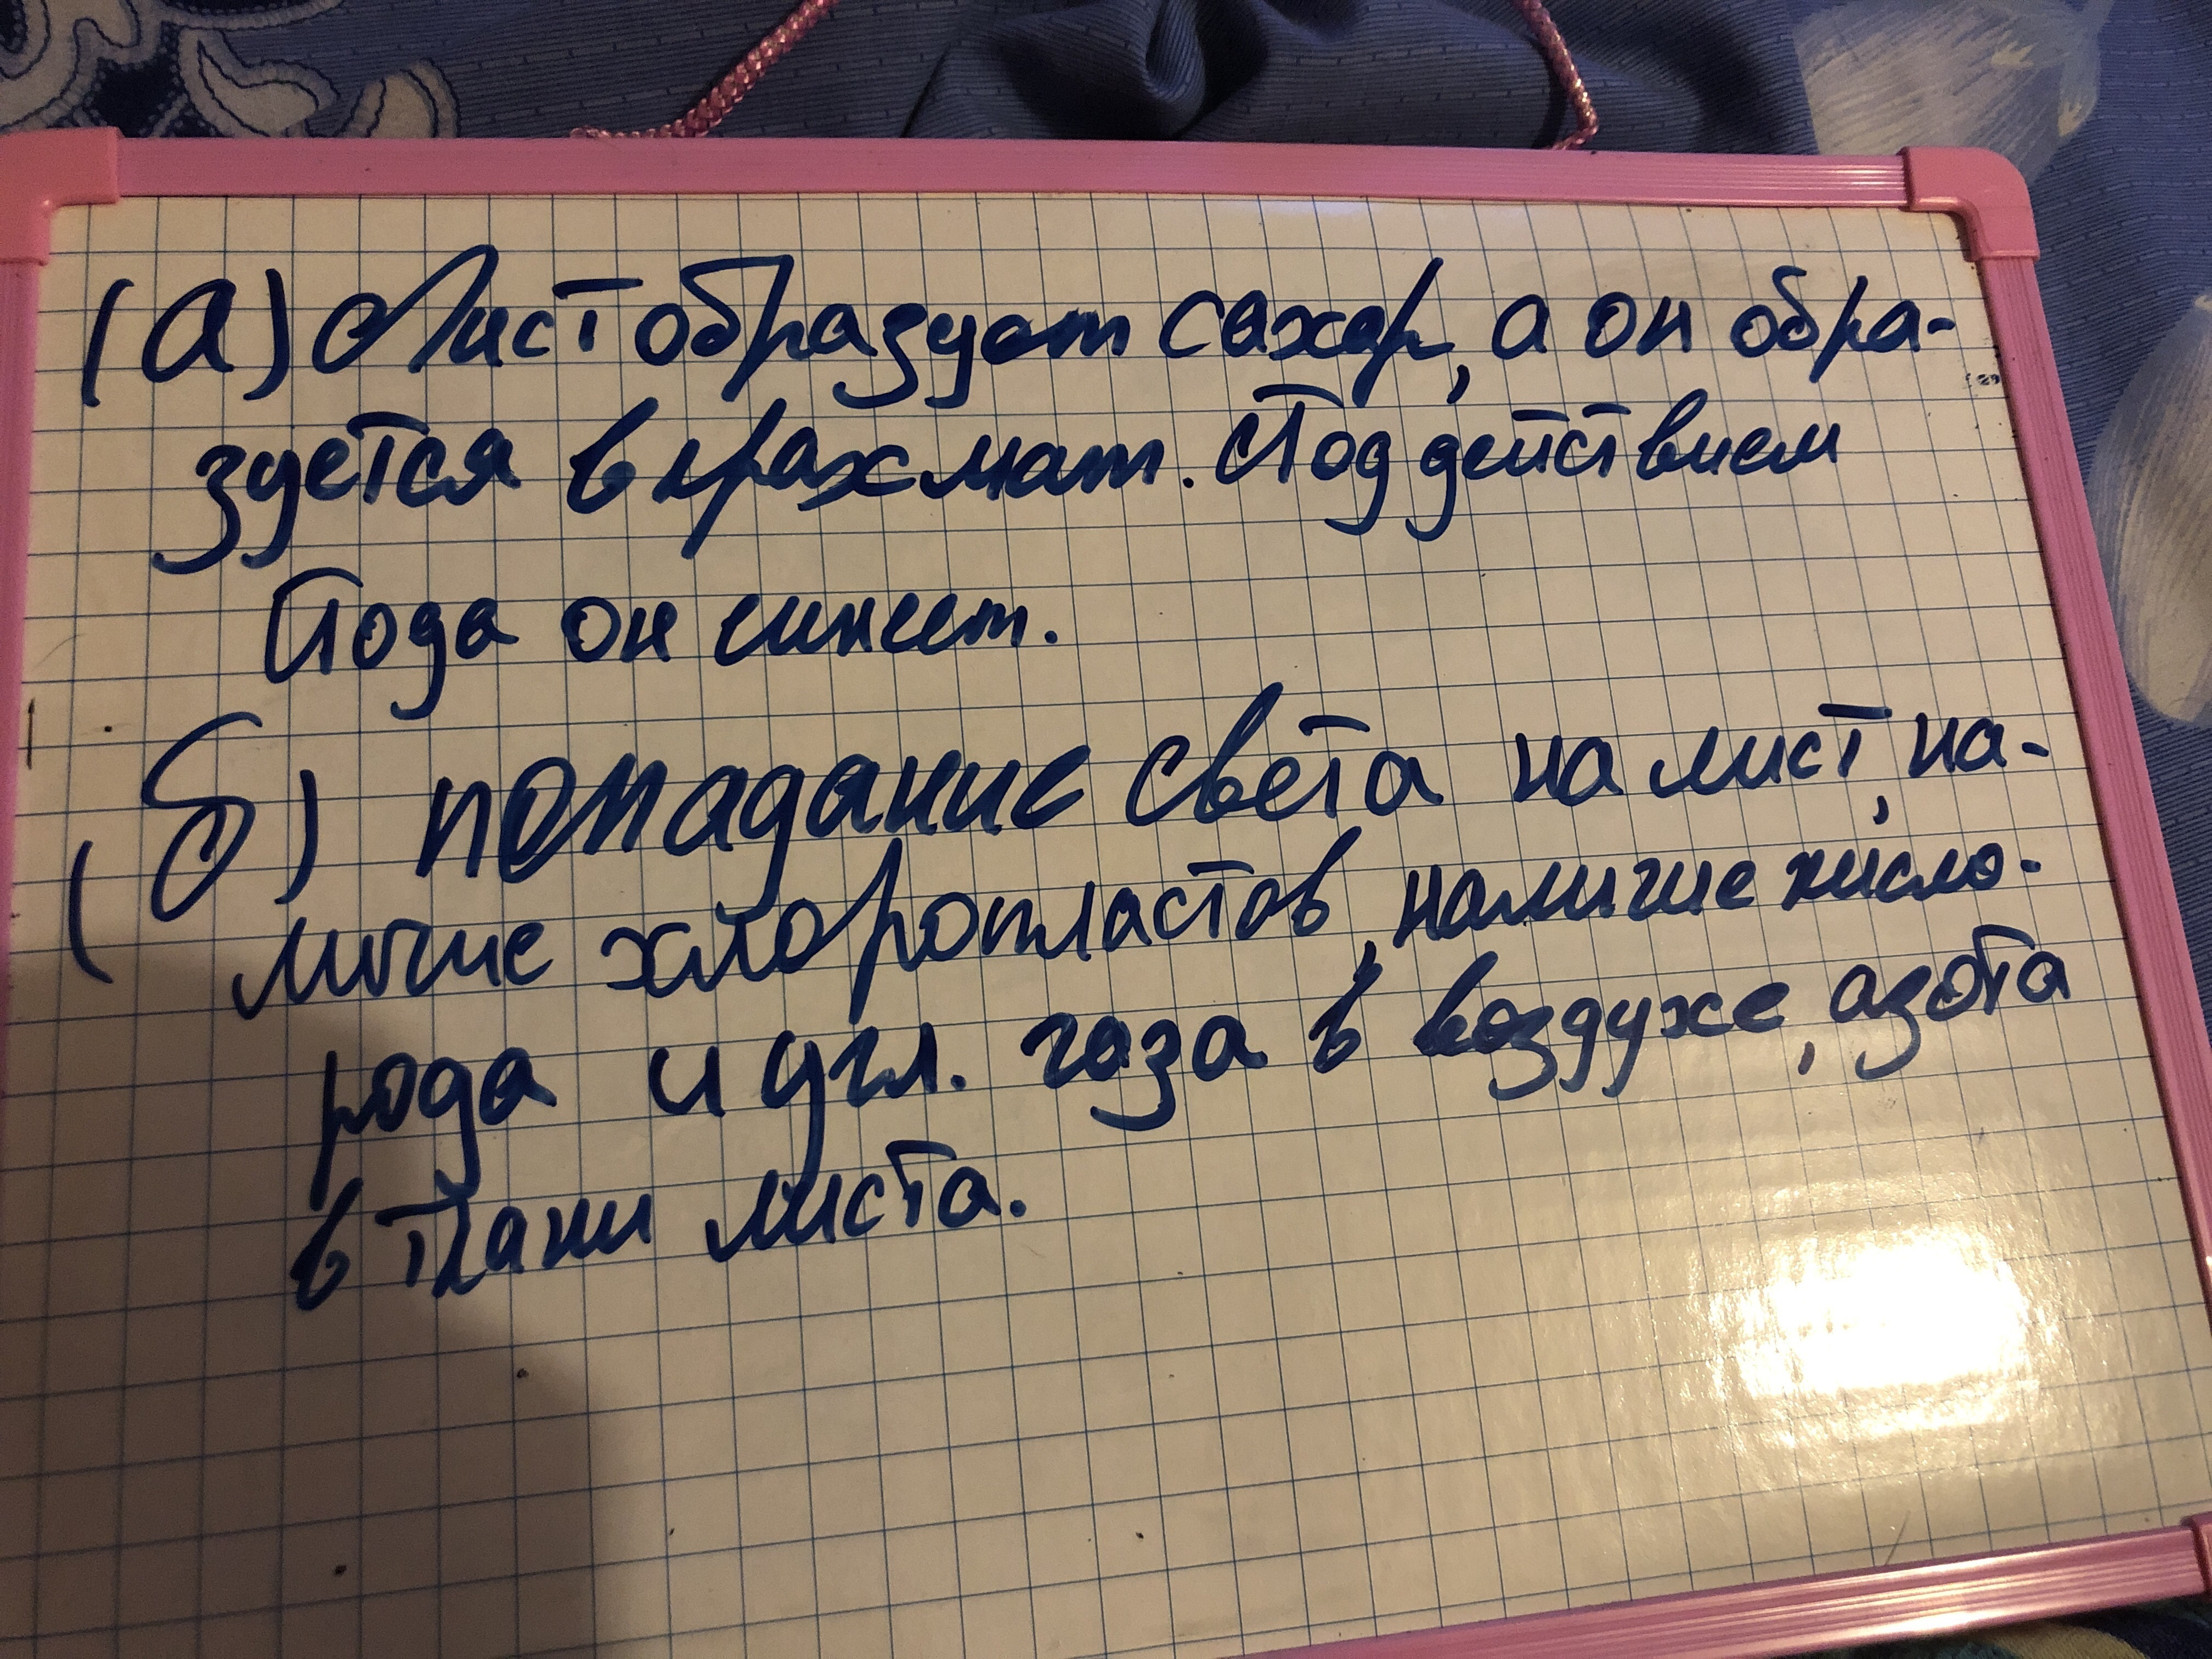 (а) Лист образует сахар, а он обра-
зуется в крахмат. Под действием
Йода он синеет.
(б) попадание света на лист, на-
личие хлоропластов, наличие кисло-
рода и угл. газа в воздухе, азота
в ткани листа.